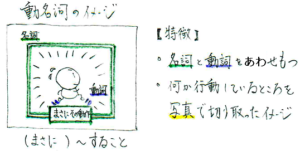 動名詞のイメージ
名詞
動詞
まさにその動作
(まさに)〜すること
【特徴】
・名詞と動詞をあわせもつ
・何か行動しているところを
写真で切り取ったイメージ